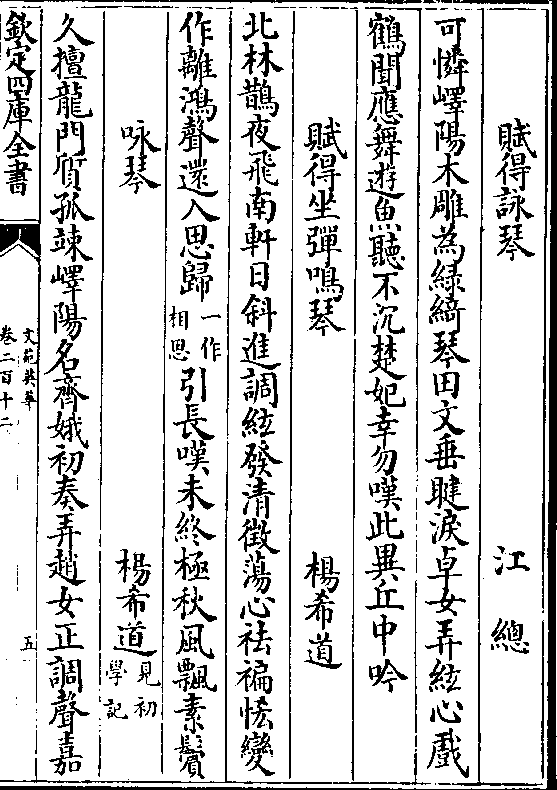 賦得詠琴　江總
可憐嶧陽木雕為緑綺琴田文垂睫淚卓女弄絃心戲
鶴聞應舞遊魚聽不沉楚妃幸勿嘆此異丘中吟
賦得坐彈鳴琴　楊希道
北林鵲夜飛南軒日斜進調絃發清徵蕩心袪褊恡變
作離鴻聲還入思歸一作相思引長嘆未終極秋風飄素鬢
咏琴　楊希道見初學記
久擅龍門質孤竦嶧陽名齊娥初奏弄趙女正調聲嘉
欽定四庫全書
文苑英華
卷二百十二
五